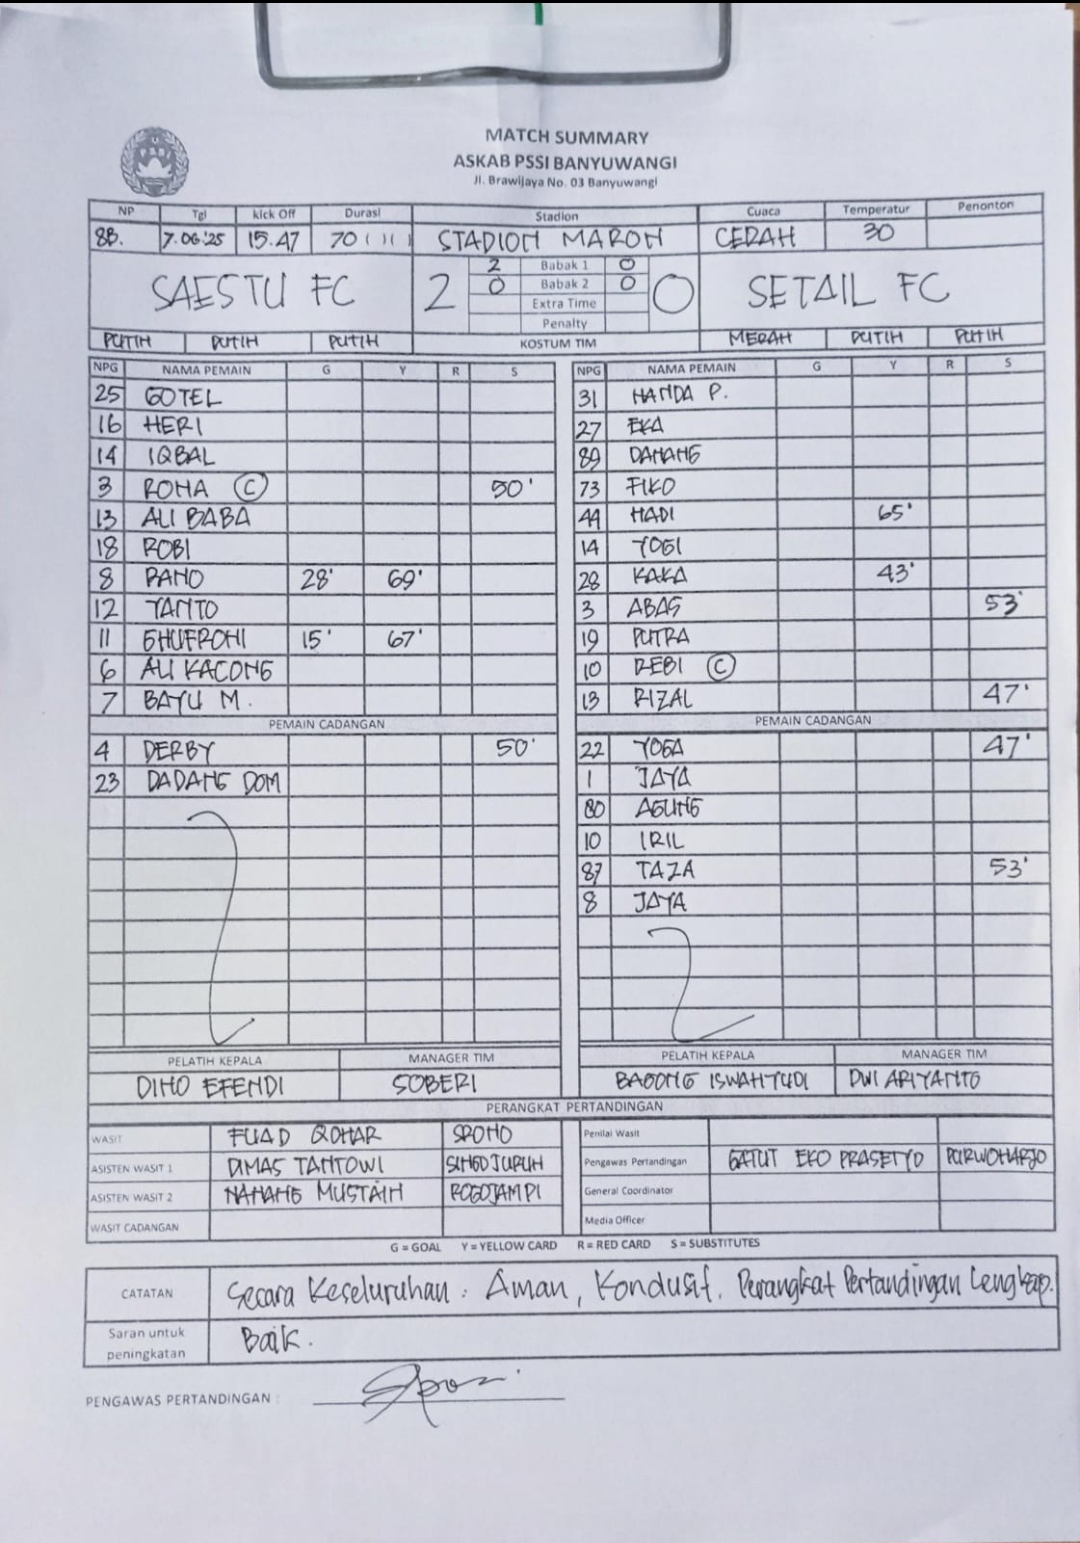 MATCH SUMMARY
ASKAB PSSI BANYUWANGI
Jl. Brawijaya No. 03 Banyuwangi
NP Tgl kick Off Durasi Stadion Cuaca Temperatur Penonton
8B. 7.06.25 15.47 70 ( ) ( ) STADION MARON CERAH 30
SAESTU FC 2 0 SETAIL FC
2 Babak 1 0
0 Babak 2 0
Extra Time
Penalty
PUTIH PUTIH PUTIH KOSTUM TIM MERAH PUTIH PUTIH
NPG NAMA PEMAIN G Y R S NPG NAMA PEMAIN G Y R S
25 GOTEL 31 HANDA P.
16 HERI 27 EKA
14 IQBAL 89 DANANG
3 ROMA C 50' 73 FIKO
13 ALI BABA 44 HADI 65'
18 ROBI 14 YOGI
8 PANO 28' 69' 28 KAKA 43'
12 TANTO 3 ABAS 53'
11 GHUFRONI 15' 67' 19 PUTRA
6 ALI KACONG 10 REBI C
7 BAYU M. 13 RIZAL 47'
PEMAIN CADANGAN PEMAIN CADANGAN
4 DERBY 50' 22 YOGA 47'
23 DADANG DOM 1 JAYA
80 AGUNG
10 IRIL
87 TAZA 53'
8 JAYA
PELATIH KEPALA MANAGER TIM PELATIH KEPALA MANAGER TIM
DINO EFENDI SOBERI BAGONG ISWAHYUDI DWI ARIYANTO
PERANGKAT PERTANDINGAN
WASIT FUAD QOHAR SRONO Penilai Wasit
ASISTEN WASIT 1 DIMAS TANTOWI SINGOJURUH Pengawas Pertandingan GATUT EKO PRASETYO PURWOHARJO
ASISTEN WASIT 2 NANANG MUSTAIN ROGOJAMPI General Coordinator
WASIT CADANGAN Media Officer
G = GOAL Y = YELLOW CARD R = RED CARD S = SUBSTITUTES
CATATAN Secara Keseluruhan : Aman, Kondusif. Perangkat Pertandingan Lengkap.
Saran untuk peningkatan Baik.
PENGAWAS PERTANDINGAN :